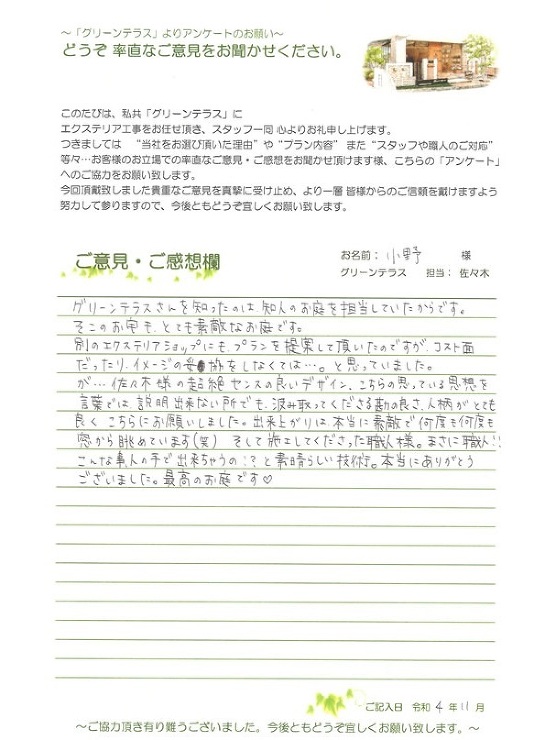 ～「グリーンテラス」よりアンケートのお願い～
どうぞ 率直なご意見をお聞かせください。
このたびは、私共「グリーンテラス」に
エクステリア工事をお任せ頂き、スタッフ一同 心よりお礼申し上げます。
つきましては “当社をお選び頂いた理由” や “プラン内容” また “スタッフや職人のご対応”
等々…お客様のお立場での率直なご意見・ご感想をお聞かせ頂けます様、こちらの「アンケート」
へのご協力をお願い致します。
今回頂戴致しました貴重なご意見を真摯に受け止め、より一層 皆様からのご信頼を戴けますよう
努力して参りますので、今後ともどうぞ宜しくお願い致します。
お名前： 小野 様
ご意見・ご感想欄
グリーンテラス 担当： 佐々木
グリーンテラスさんを知ったのは、知人のお庭を担当していたからです。
そこのお宅も、とても素敵なお庭です。
別のエクステリアショップにも、プランを提案して頂いたのですが、コスト面
だったり、イメージの妥協をしなくては…。と思っていました。
が…佐々木様の超絶センスの良いデザイン、こちらの思っている思想を
言葉では、説明出来ない所でも、汲み取ってくださる勘の良さ、人柄がとても
良く こちらにお願いしました。出来上がりは、本当に素敵で何度も何度も
窓から眺めています(笑) そして施工してくださった職人様。まさに職人!!
こんな事人の手で出来ちゃうの!?と素晴らしい技術。本当にありがとう
ございました。最高のお庭です♡
ご記入日 令和 4 年 11 月
～ご協力頂き有り難うございました。今後ともどうぞ宜しくお願い致します。～